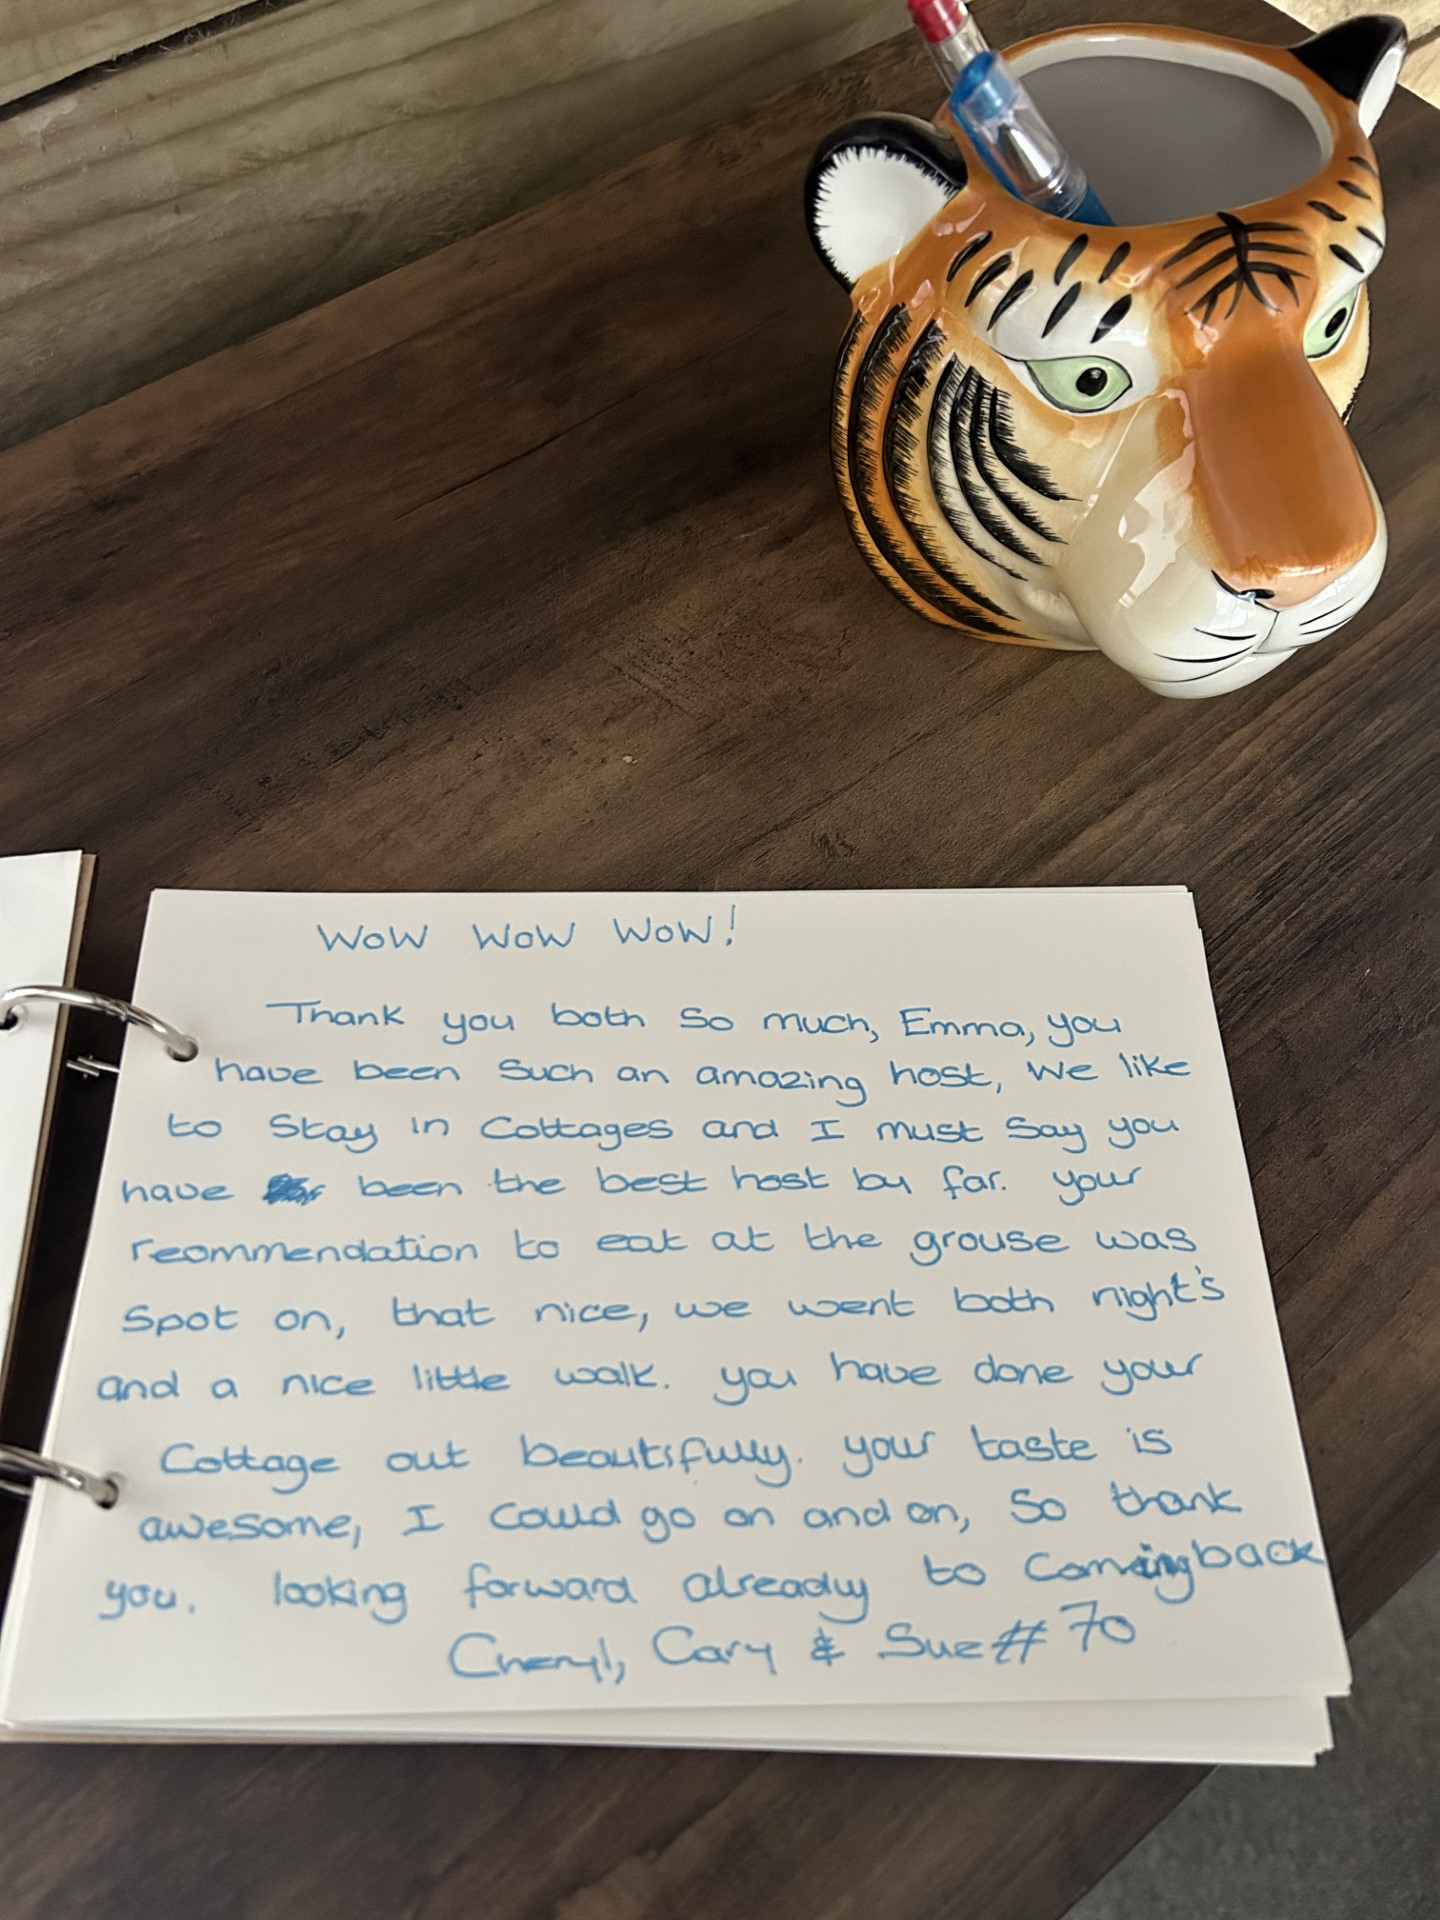 WoW WoW WoW!
Thank you both so much, Emma, you
have been such an amazing host, we like
to stay in cottages and I must say you
have been the best host by far. your
reommendation to eat at the grouse was
spot on, that nice, we went both night's
and a nice little walk. you have done your
Cottage out beautifully. your taste is
awesome, I could go on and on, so thank
you. looking forward already to coming back
Cheryl, Cary & Sue # 70